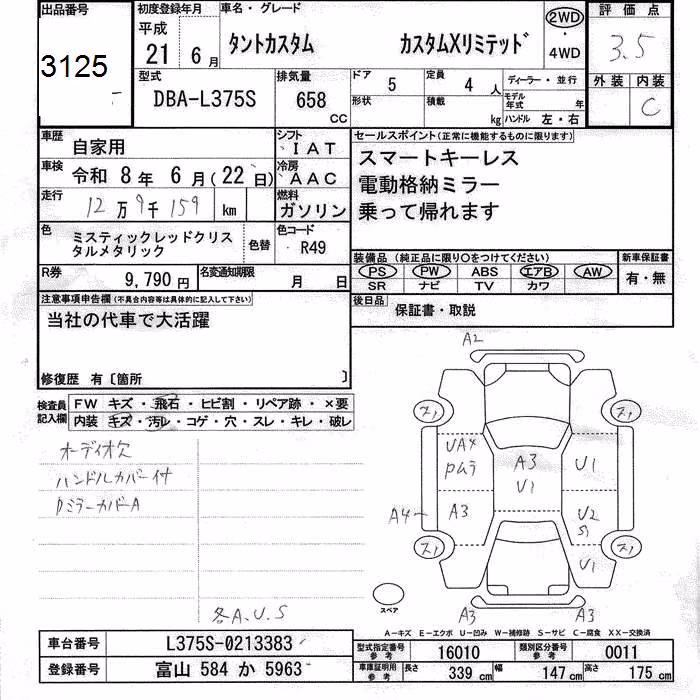 出品番号 初度登録年月 車名・グレード 評価点
3125 平成 21 年 6 月 タントカスタム カスタムXリミテッド 2WD ・ 4WD 3.5
型式 DBA-L375S 排気量 658 CC ドア 5 定員 4 人 ディーラー・並行 外装 内装 C
形状 積載 kg モデル年式 年 ハンドル 左・右
車歴 自家用 シフト IAT セールスポイント(正常に機能するものに限ります)
車検 令和 8 年 6 月(22 日) 冷房 AAC スマートキーレス
走行 12万9千159 km 燃料 ガソリン 電動格納ミラー
乗って帰れます
色 ミスティックレッドクリスタルメタリック 色替 色コード R49
装備品(純正品に限り○をつけてください) 新車保証書
PS PW ABS エアB AW 有・無
SR ナビ TV カワ
R券 9,790 円 名変通知期限 月 日
後日品 保証書・取説
注意事項申告欄(不具合内容等は具体的に記入して下さい)
当社の代車で大活躍
修復歴 有〔箇所 〕
検査員記入欄 FW キズ・飛石・ヒビ割・リペア跡・×要
内装 キズ・汚レ・コゲ・穴・スレ・キレ・破レ
オーディオ欠
ハンドルカバー付
PミラーカバーA
各A.U.S
A2
UA4
Pムラ
A3
U1
U1
A4
A3
U2
S1
U1
スペア
A3 A3
A-キズ E-エクボ U-凹み W-補修跡 S-サビ C-腐食 XX-交換済
車台番号 L375S-0213383 型式指定番号 参考 16010 類別区分番号 参考 0011
登録番号 富山 584 か 5963 車庫証明用 参考 長さ 339 cm 幅 147 cm 高さ 175 cm